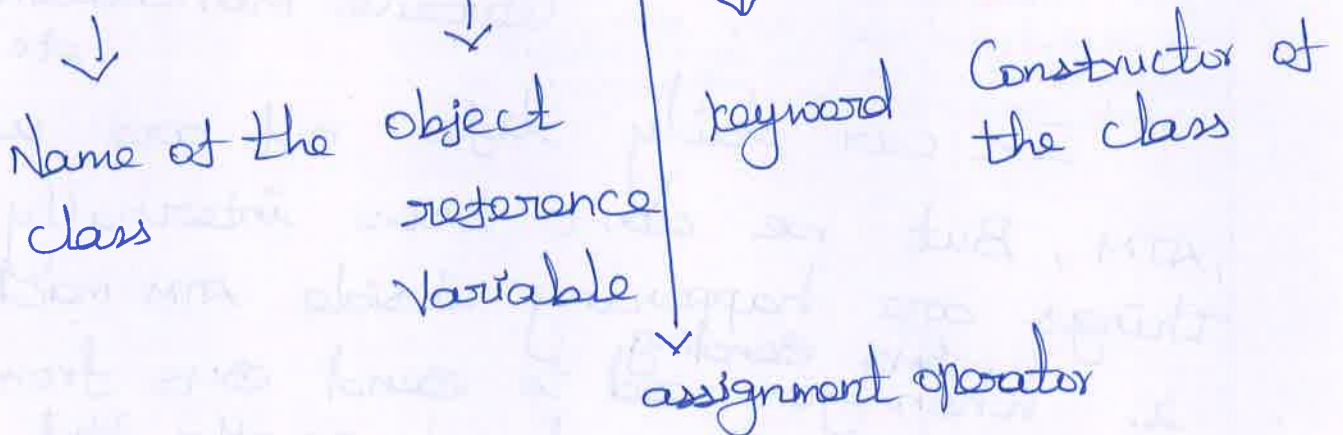 Name of the
class
object
reference
variable
keyword
Constructor of
the class
assignment operator